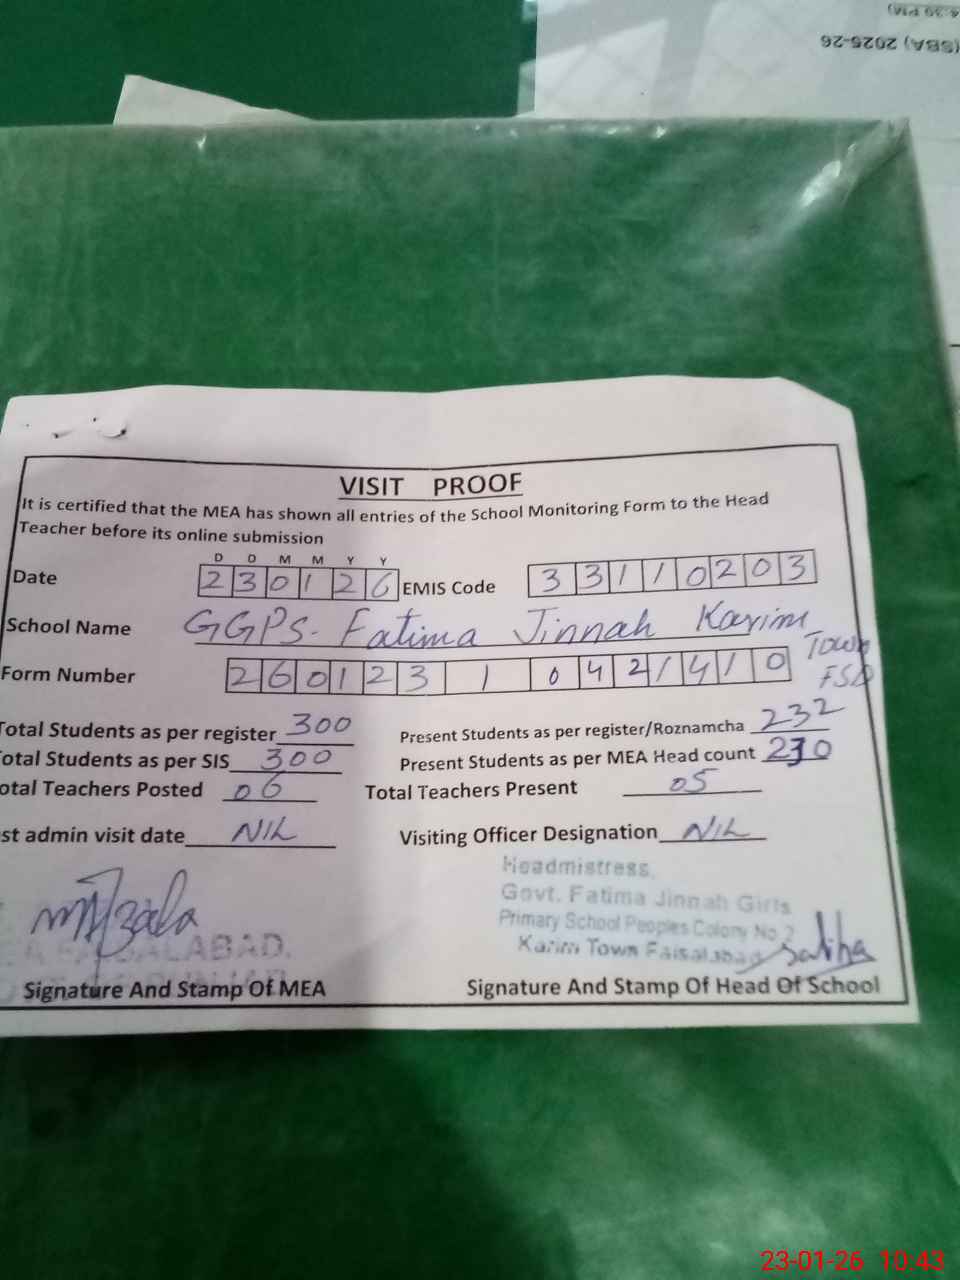 4:30 PM)
(SBA) 2025-26
VISIT PROOF
It is certified that the MEA has shown all entries of the School Monitoring Form to the Head
Teacher before its online submission
D D M M Y Y
Date 2 3 0 1 2 6 EMIS Code 3 3 1 1 0 2 0 3
School Name GGPS. Fatima Jinnah Karim
Town
FSD
Form Number 2 6 0 1 2 3 1 0 4 2 1 4 1 0
Total Students as per register 300 Present Students as per register/Roznamcha 232
Total Students as per SIS 300 Present Students as per MEA Head count 230
otal Teachers Posted 06 Total Teachers Present 05
st admin visit date NIL Visiting Officer Designation NIL
Headmistress,
Govt. Fatima Jinnah Girls
Primary School Peoples Colony No 2
Karim Town Faisalabad
Saliha
FAISALABAD.
Signature And Stamp Of MEA Signature And Stamp Of Head Of School
23-01-26 10:43